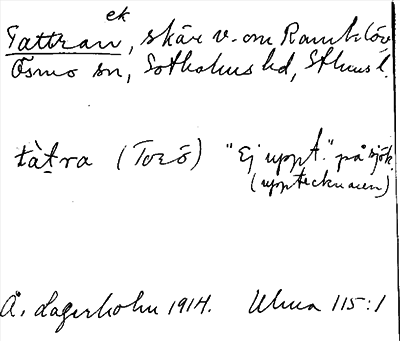 ek
Tattran, skär v. om Ramklöv
Ösmo sn, Sotholms hd, Sthms l.
tàt̠ra (Torö) "Ej uppt." på sjök.
(upptecknaren)
Å. Lagerholm 1914. Ulma 115:1